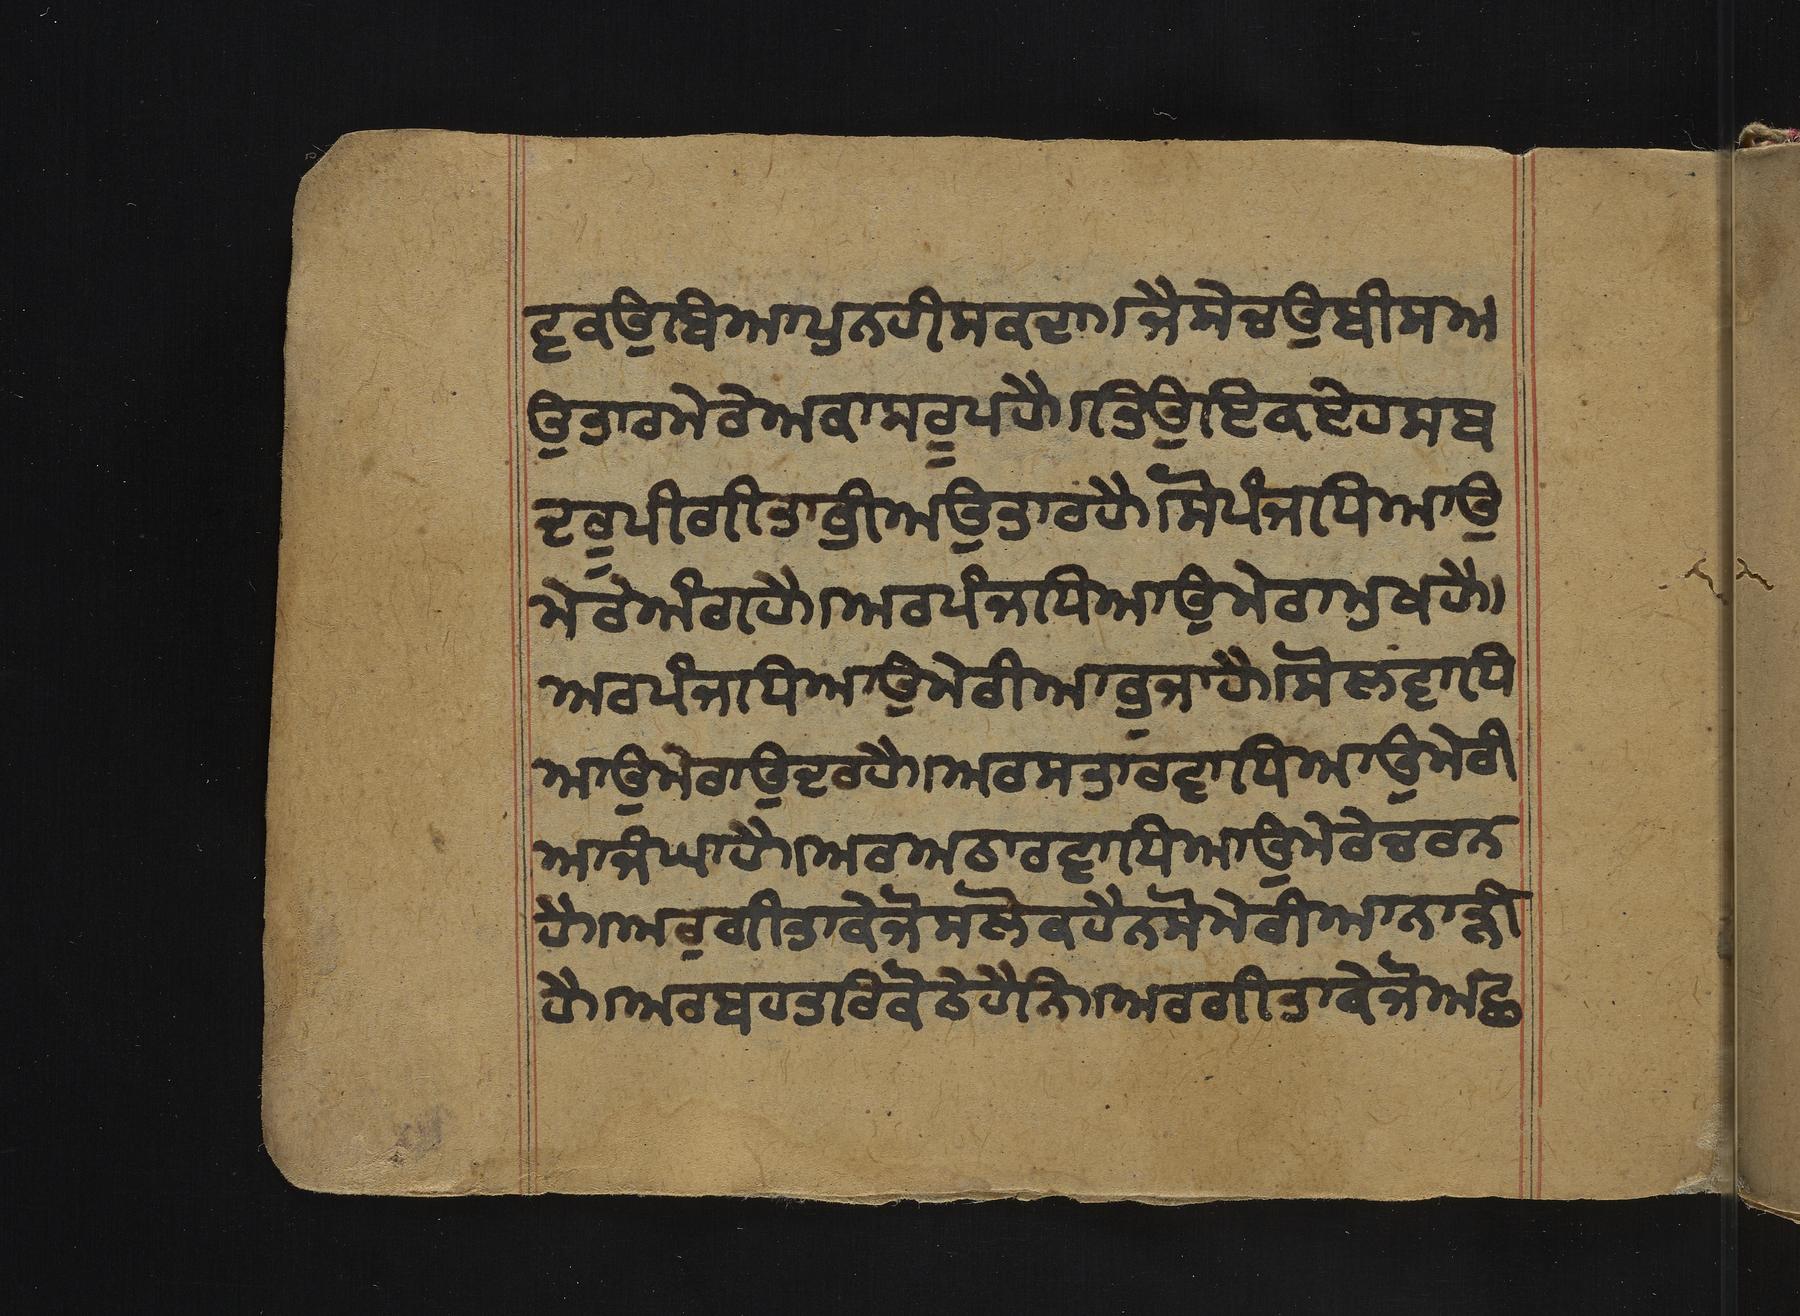 ਦ੍ਵਕਉਬਿਆਪੁਨਹੀਸਕਦਾ।ਜੈਸੇਚਉਬੀਸਅ
ਉਤਾਰਮੇਰੇਅਕਾਸਰੂਪਹੈ।ਤਿਉਇਕਏਹਸਬ
ਦਰੂਪੀਗੀਤਾਭੀਅਉਤਾਰਹੈ।ਸੋਪੰਜਧਿਆਉ
ਮੇਰੇਅੰਗਹੈ।ਅਰਪੰਜਧਿਆਉਮੇਰਾਮੁਖਹੈ।
ਅਰਪੰਜਧਿਆਉਮੇਰੀਆਭੁਜਾਹੈ।ਸੋਲਵ੍ਹਾਧਿ
ਆਉਮੇਰਾਉਦਰਹੈ।ਅਰਸਤਾਰਵ੍ਹਾਧਿਆਉਮੇਰੀ
ਆਜੰਘਾਹੈ।ਅਰਅਠਾਰਵ੍ਹਾਧਿਆਉਮੇਰੇਚਰਨ
ਹੈ।ਅਰੁਗੀਤਾਕੇਜੋਸਲੋਕਹੈਨਸੋਮੇਰੀਆਨਾੜੀ
ਹੈ।ਅਰਬਹਤਰਿਕੋਠੇਹੈਨਿ।ਅਰਗੀਤਾਕੇਜੋਅਛ